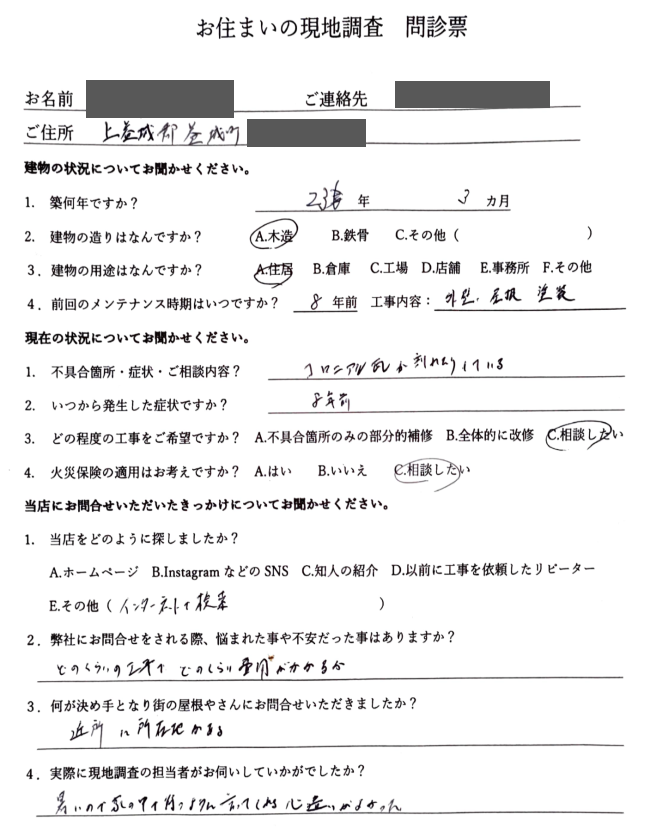 お住まいの現地調査　問診票
お名前　ご連絡先
ご住所　上益城郡益城町
建物の状況についてお聞かせください。
1.　築何年ですか？　23 年　3 カ月
2.　建物の造りはなんですか？　A.木造　B.鉄骨　C.その他（　）
3．建物の用途はなんですか？　A.住居　B.倉庫　C.工場　D.店舗　E.事務所　F.その他
4．前回のメンテナンス時期はいつですか？　8 年前　工事内容：外壁、屋根 塗装
現在の状況についてお聞かせください。
1.　不具合箇所・症状・ご相談内容？　コロニアル瓦が割れたりしている
2.　いつから発生した症状ですか？　8年前
3.　どの程度の工事をご希望ですか？　A.不具合箇所のみの部分的補修　B.全体的に改修　C.相談したい
4.　火災保険の適用はお考えですか？　A.はい　B.いいえ　C.相談したい
当店にお問合せいただいたきっかけについてお聞かせください。
1.　当店をどのように探しましたか？
A.ホームページ　B.Instagram などの SNS　C.知人の紹介　D.以前に工事を依頼したリピーター
E.その他（インターネットで検索　）
2．弊社にお問合せをされる際、悩まれた事や不安だった事はありますか？
どのくらいの工事で どのくらい費用がかかるか
3．何が決め手となり街の屋根やさんにお問合せいただきましたか？
近所に所在地がある
4．実際に現地調査の担当者がお伺いしていかがでしたか？
暑いので家の中で待つように言ってくれる心遣いがよかった